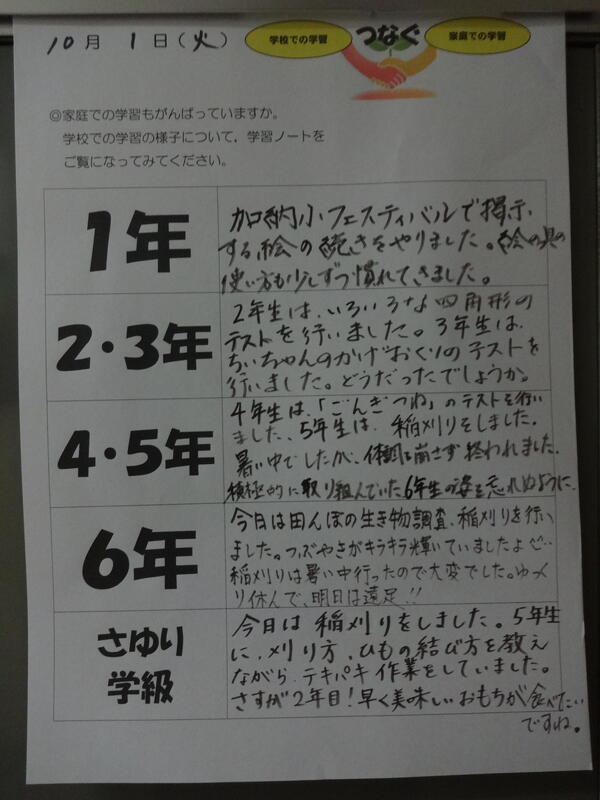 10月 1日(火)
学校での学習
つなぐ
家庭での学習
◎家庭での学習もがんばっていますか。
学校での学習の様子について,学習ノートを
ご覧になってみてください。
1年
加納小フェスティバルで掲示
する絵の続きをやりました。絵の具の
使い方も少しずつ慣れてきました。
2・3年
2年生は、いろいろな四角形の
テストを行いました。3年生は、
ちいちゃんのかげおくりのテストを
行いました。どうだったでしょうか。
4・5年
4年生は、「ごんぎつね」のテストを行い
ました、5年生は、稲刈りをしました。
暑い中でしたが、体調を崩さず終われました。
積極的に取り組んでいた6年生の姿を忘れぬように、
6年
今日は田んぼの生き物調査、稲刈りを行い
ました。つぶやきがキラキラ輝いていましたよ
稲刈りは暑い中行ったので大変でした。ゆっく
り休んで、明日は遠足!!
さゆり
学級
今日は稲刈りをしました。5年生
に、刈り方、ひもの結び方を教え
ながら、テキパキ作業をしていました。
さすが2年目!早く美味しいおもちが食べたい
ですね。